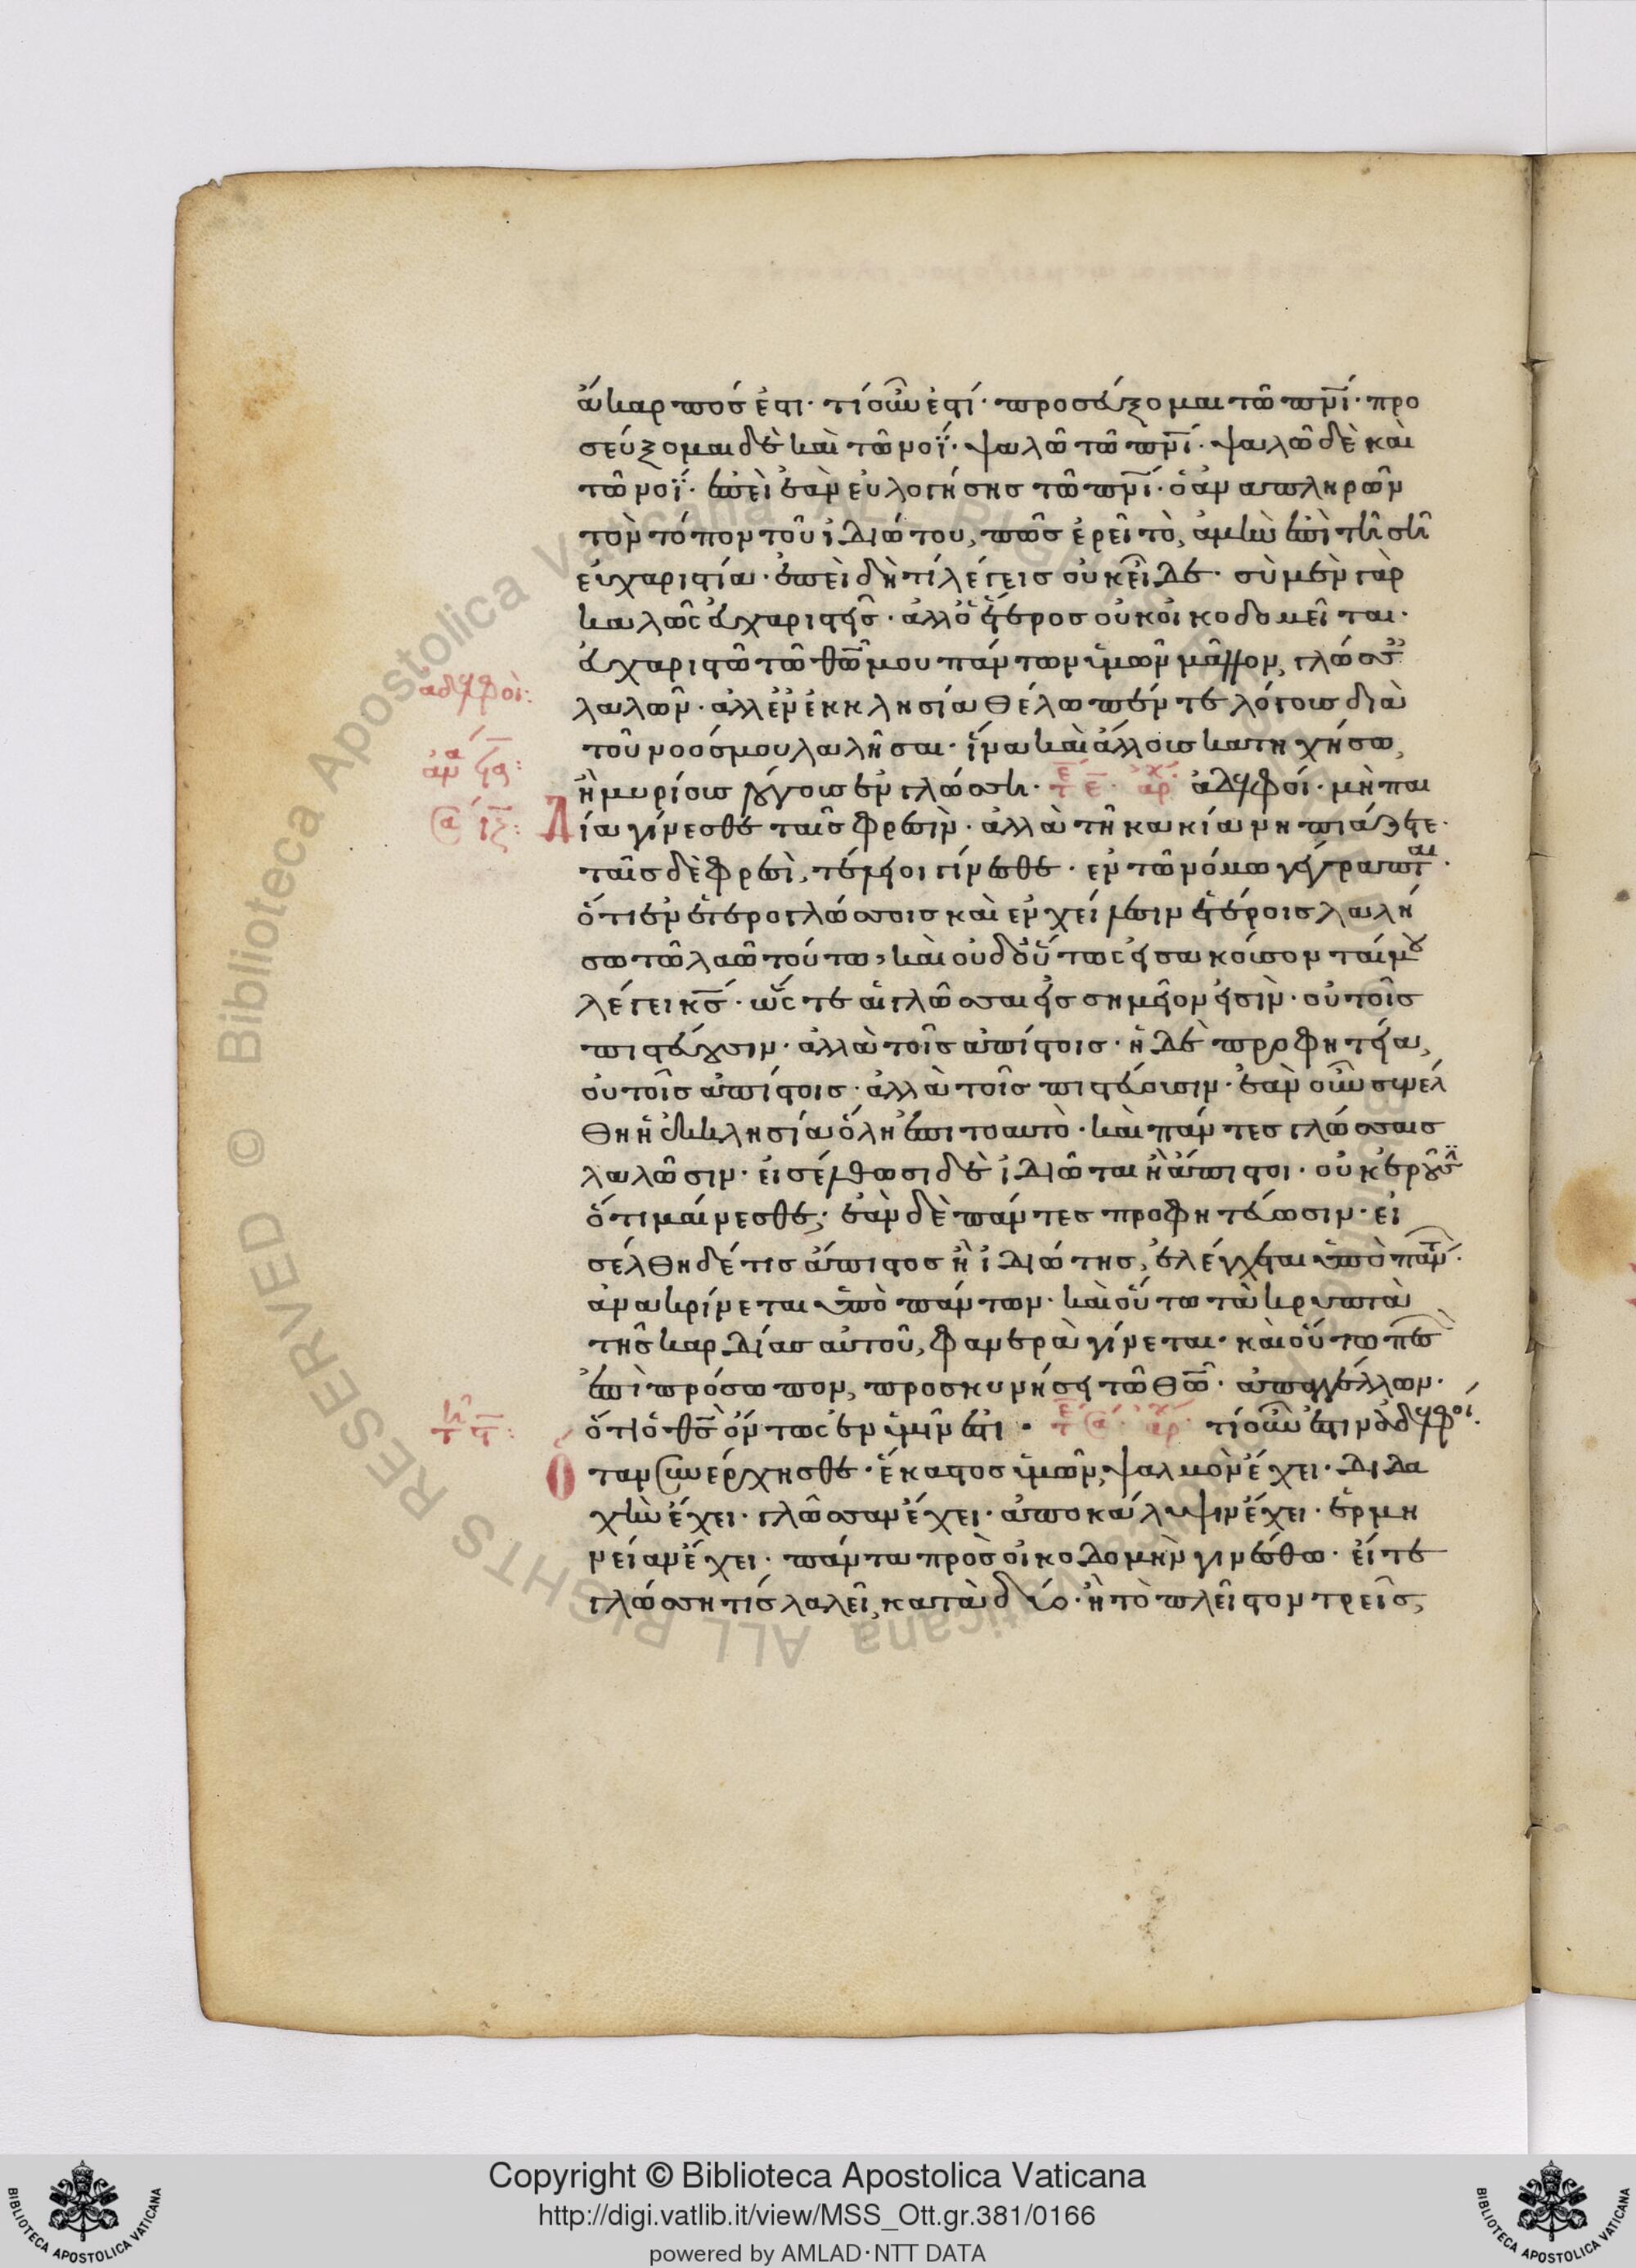 ἄκαρπός ἐστι· τί οὖν ἐστί· προσεύξομαι τῶ πνι· προ
σεύξομαι δὲ καὶ τῶ νοΐ· ψαλῶ τῶ πνι· ψαλῶ δὲ καὶ
τῶ νοΐ· ἐπεὶ ἐὰν εὐλογήσης τῶ πνι· ὁ ἀναπληρῶν
τὸν τόπον τοῦ ἰδιώτου, πῶς ἐρεῖ τὸ, ἀμὴν ἐπὶ τῆ σῆ
εὐχαριστία· ἐπεὶ δὴ τί λέγεις οὐκ εἶδε· σὺ μὲν γὰρ
καλῶς εὐχαριστεῖς· ἀλλ ὁ ἕτερος οὐκ οἰκοδομεῖται·
εὐχαριστῶ τῶ θω μου πάντων ὑμῶν μᾶλλον, γλώσσ
λαλῶν· ἀλλ ἐν ἐκκλησία θέλω πέντε λόγους διὰ
αδελφοὶ:
τοῦ νοός μου λαλῆσαι· ἵνα καὶ ἄλλους κατηχήσω,
ἢ μυρίους λόγους ἐν γλώσση· τε ε· αρχ· ἀδελφοί· μὴ παι
δία γίνεσθε ταῖς φρεσὶν· ἀλλὰ τῆ κακία νηπιάζετε·
ταῖς δὲ φρεσὶ, τέλειοι γίνεσθε· ἐν τῶ νόμω γέγραπται·
ὅτι ἐν ἑτερογλώσσοις καὶ ἐν χείλεσιν ἑτέροις λαλή
σω τῶ λαῶ τούτω, καὶ οὐδ οὕτως εἰσακούσονταί μου
λέγει κς· ὥστε αἱ γλῶσσαι εἰς σημεῖον εἰσὶν· οὐ τοῖς
πιστεύουσιν· ἀλλὰ τοῖς ἀπίστοις· ἡ δὲ προφητεία,
οὐ τοῖς ἀπίστοις· ἀλλὰ τοῖς πιστεύουσιν· ἐὰν οὖν συνέλ
θη ἡ ἐκκλησία ὅλη ἐπι τοαυτὸ· καὶ πάντες γλώσσαις
λαλῶσιν· εἰσέλθωσι δὲ ἰδιῶται ἢ ἄπιστοι· οὐκ ἐροῦσ
ὅτι μαίνεσθε; ἐὰν δὲ πάντες προφητεύωσιν· εἰ
σέλθη δέ τις ἄπιστος ἢ ἰδιώτης, ἐλέγχεται ὑπὸ πάντ·
ἀνακρίνεται ὑπὸ πάντων· καὶ οὕτω τὰ κρυπτὰ
τῆς καρδίας αὐτοῦ, φανερὰ γίνεται· καὶ οὕτω πεσ
ἐπὶ πρόσωπον, προσκυνήσει τῶ θω· ἀπαγγέλλων·
ὅτι ὁ θς ὄντως ἐν ὑμῖν ἐστι· τε· αρχ· τί οὖν ἐστιν ἀδελφοί·
ὅταν συνέρχησθε· ἕκαστος ὑμῶν, ψαλμὸν ἔχει· διδα
χὴν ἔχει· γλῶσσαν ἔχει· ἀποκάλυψιν ἔχει· ἑρμη
νείαν ἔχει· πάντα πρὸς οἰκοδομὴν γινέσθω· εἴτε
γλώσση τίς λαλεῖ, κατὰ δύο· ἢ τὸ πλεῖστον τρεῖς,
© Biblioteca Apostolica Vaticana ALL RIGHTS RESERVED
BIBLIOTECA APOSTOLICA VATICANA
Copyright © Biblioteca Apostolica Vaticana
http://digi.vatlib.it/view/MSS_Ott.gr.381/0166
powered by AMLAD·NTT DATA
BIBLIOTECA APOSTOLICA VATICANA